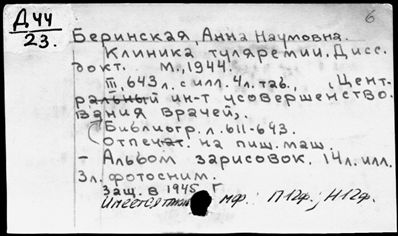 Д44
23.
6
Беринская, Анна Наумовна.
Клиника туляремии. Дисс.
докт. М., 1944.
III, 643 л. с илл. 4 л. таб., (Цент-
ральный ин-т усовершенство-
вания врачей).
Библиогр. л. 611-643.
Отпечат. на пиш. маш.
- Альбом зарисовок. 14 л. илл.
3 л. фотосним.
Защ. в 1945 г
Имеется мф.: П12ф.; Н12ф.